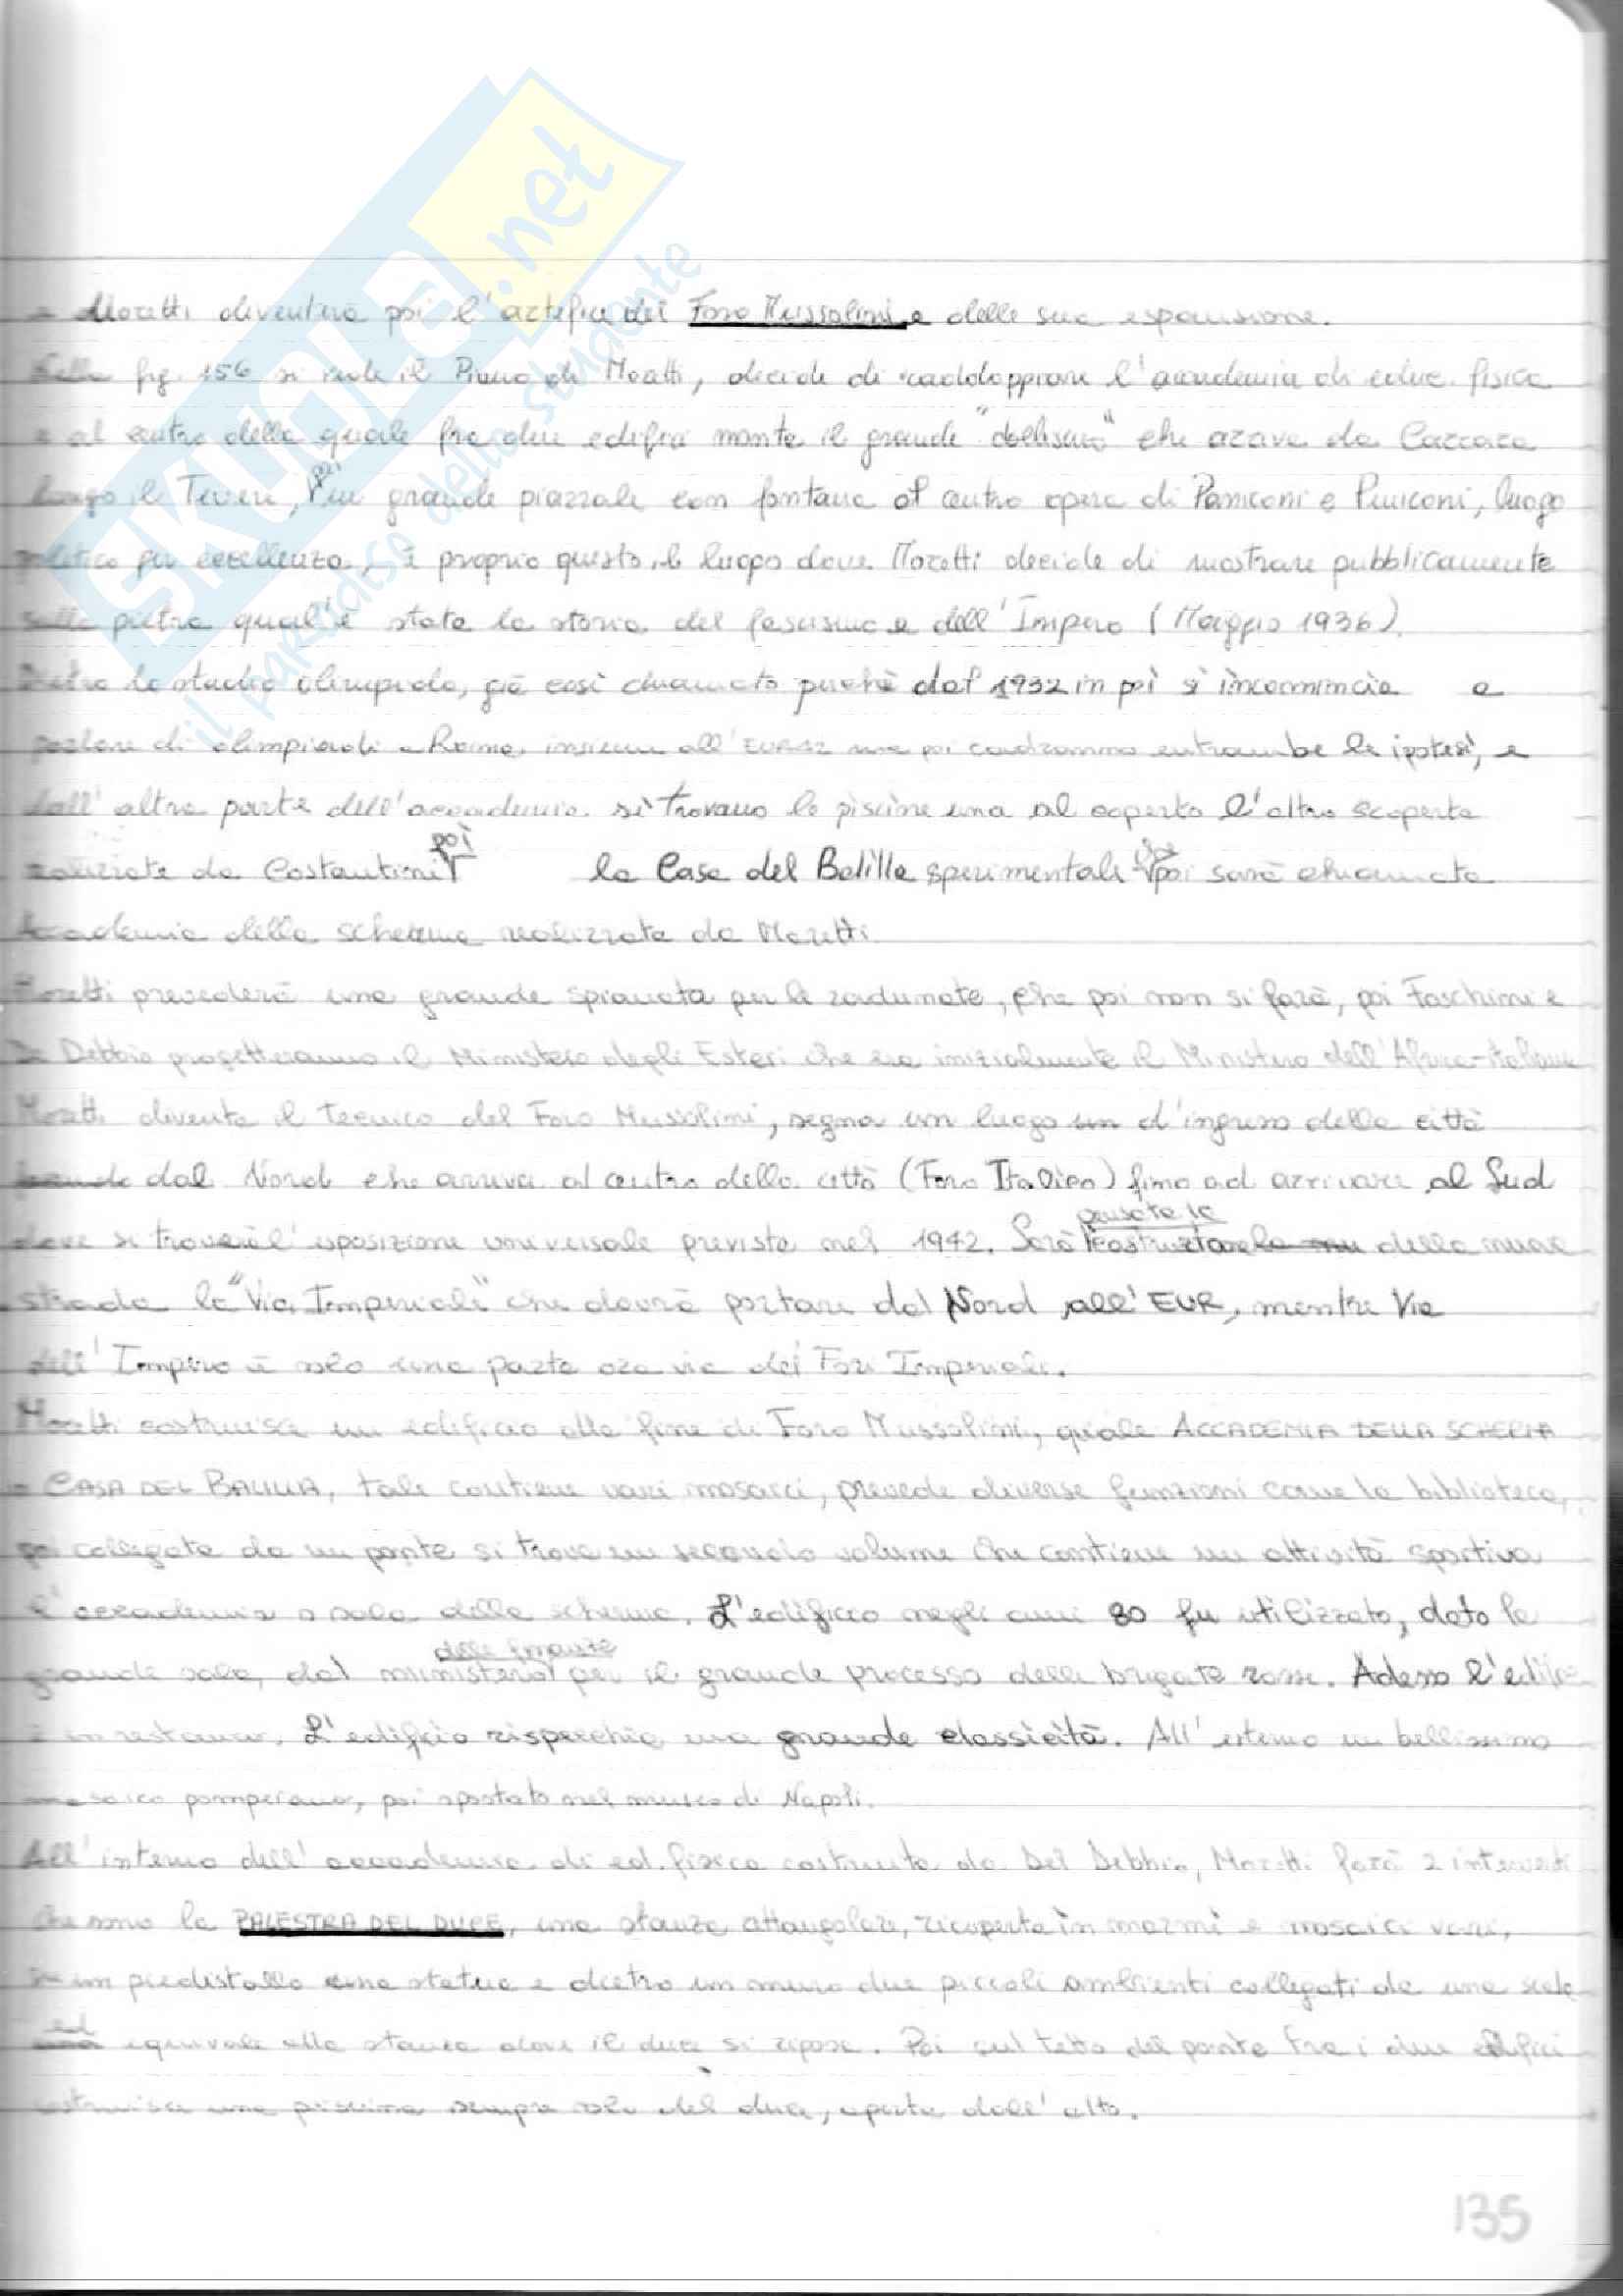 SKUOLA.net
il paradiso dello studente
e Moretti diventerà poi l'artefice del Foro Mussolini e della sua espansione.
Nella fig. 156 si vede il Piano di Moretti, decide di raddoppiare l'accademia di educ. fisica
e al centro della quale fra due edifici monta il grande "obelisco" che arriva da Carrara
lungo il Tevere, poi un grande piazzale con fontana al centro opera di Paniconi e Pediconi, luogo
politico per eccellenza, è proprio questo il luogo dove Moretti decide di mostrare pubblicamente
sulla pietra qual'è stata la storia del fascismo e dell'Impero (Maggio 1936).
Dietro lo stadio olimpiodo, già così chiamato perchè dal 1932 in poi si incomincia a
parlare di olimpiadi a Roma insieme all'EUR42 ma poi cadranno entrambe le ipotesi, e
dall'altra parte dell'accademia si trovano le piscine una al coperto l'altra scoperta
realizzate da Costantini poi la Casa del Balilla sperimentale che poi sarà chiamata
Accademia della scherma realizzata da Moretti.
Moretti prevederà una grande spianata per le radunate, che poi non si farà, poi Foschini e
De Debbio progetteranno il Ministero degli Esteri che era inizialmente il Ministero dell'Africa-italiana
Moretti diventa il tecnico del Foro Mussolini, segna un luogo d'ingresso della città
dal Nord che arriva al centro della città (Foro Italico) fino ad arrivare al Sud
dove si troverà l'esposizione universale prevista nel 1942. Sarà pensata la costruzione della nuova
strada la "Via Imperiale" che dovrà portare dal Nord all'EUR, mentre Via
dell'Impero è solo una parte ora via dei Fori Imperiali.
Moretti costruisce un edificio alla fine di Foro Mussolini, quale ACCADEMIA DELLA SCHERMA
o CASA DEL BALILLA, tale contiene vari mosaici, prevede diverse funzioni come la biblioteca,
poi collegata da un ponte si trova un secondo volume che contiene un attività sportiva
l'accademia o sala della scherma. L'edificio negli anni 80 fu utilizzato, data la
grande sala, dal ministero delle finanze per il grande processo delle brigate rosse. Adesso l'edificio
è in restauro. L'edificio rispecchia una grande classicità. All'esterno un bellissimo
mosaico pompeiano, poi spostato nel museo di Napoli.
All'interno dell'accademia di ed. fisica costruita da Del Debbio, Moretti farà 2 interventi
che sono la PALESTRA DEL DUCE, una stanza ottangolare, ricoperta in marmi e mosaici vari,
su un piedistallo una statua e dietro un muro due piccoli ambienti collegati da una scala
ed equivale alla stanza dove il duce si riposa. Poi sul tetto del ponte fra i due edifici
costruisce una piscina sempre solo del duce, aperta dall'alto.
135